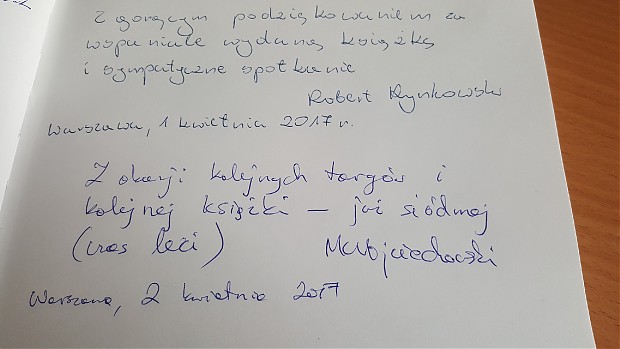 Z gorącym podziękowaniem za
wspaniale wydaną książkę
i sympatyczne spotkanie
Robert Rynkowski
Warszawa, 1 kwietnia 2017 r.
Z okazji kolejnych targów i
kolejnej książki – już siódmej
(czas leci) MWojciechowski
Warszawa, 2 kwietnia 2017